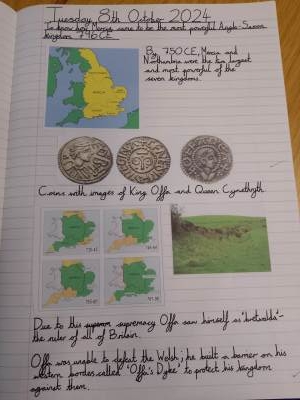 Tuesday 8th October 2024
To know how Mercia came to be the most powerful Anglo-Saxon
kingdom +796 CE.
By 750 CE, Mercia and
Northumbria were the two largest
and most powerful of the
seven kingdoms.
Coins with images of King Offa and Queen Cynethryth.
Due to this supremacy Offa saw himself as 'bretwalda'-
the ruler of all of Britain.
Offa was unable to defeat the Welsh; he built a barrier on his
western border called 'Offa's Dyke' to protect his kingdom
against them.